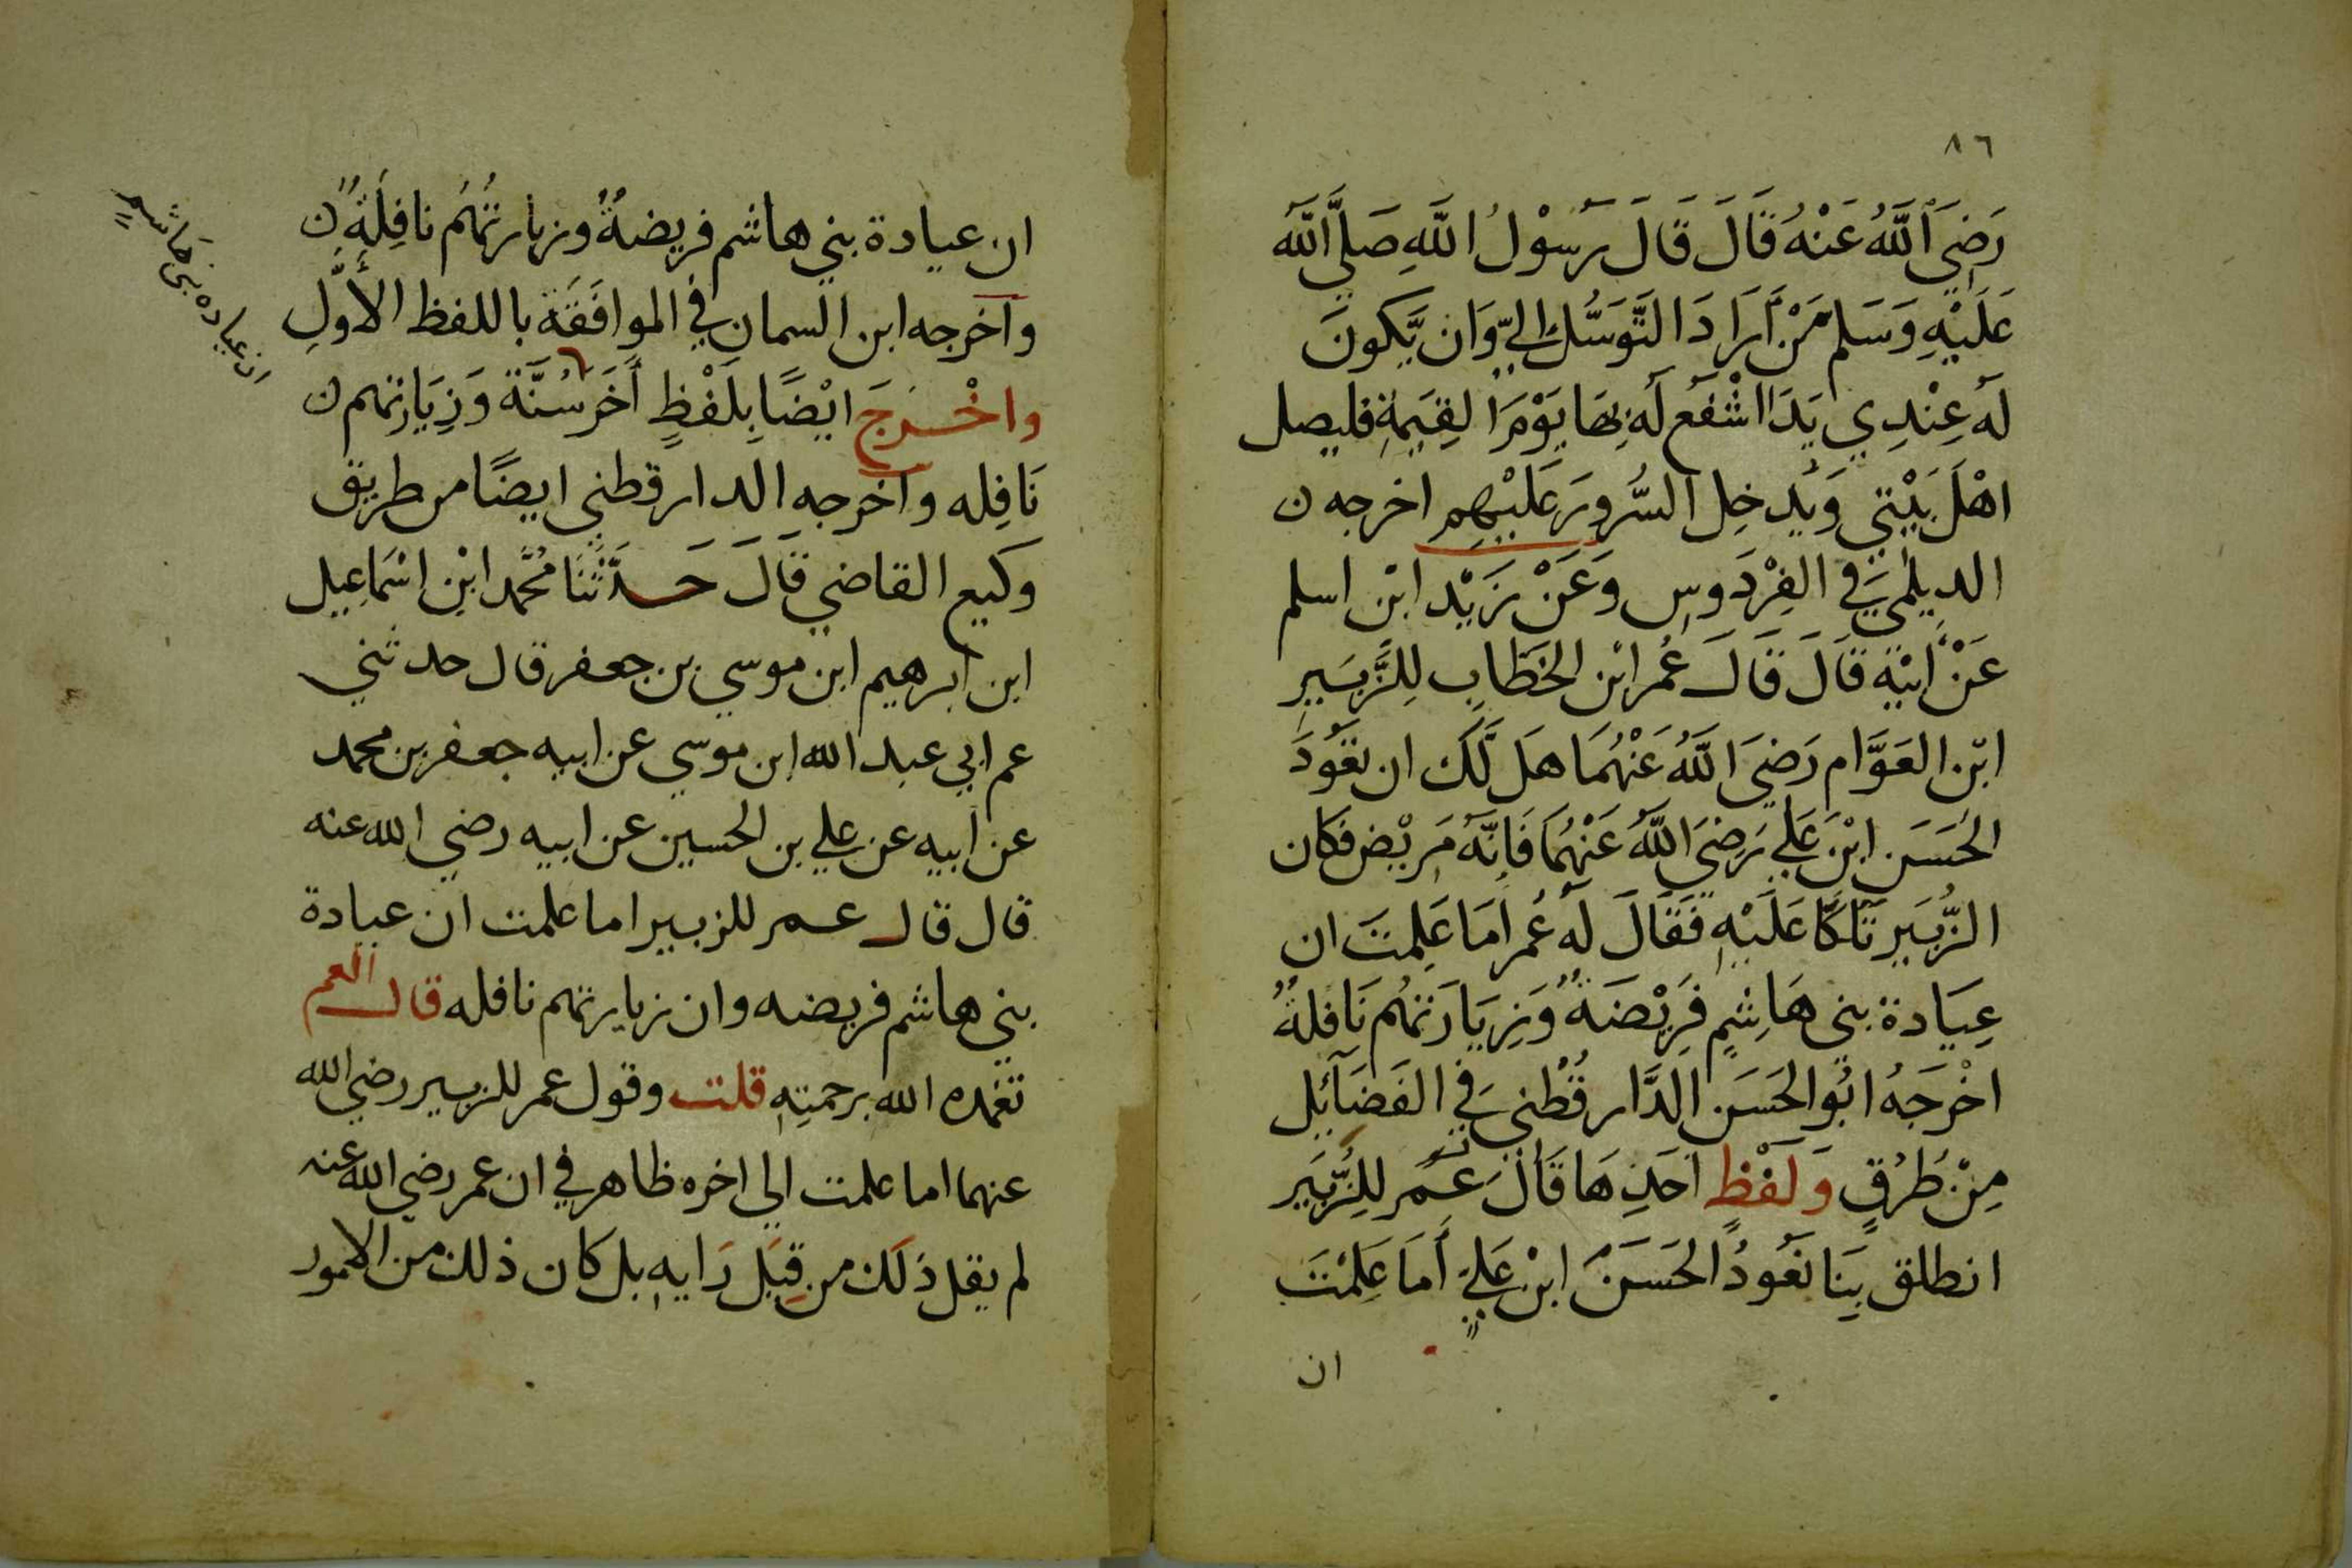 ٨٦
رَضِيَ اَللَّهُ عَنْهُ قَالَ قَالَ رَسُوْلُ اللَّهِ صَلَّى اللَّه
عَلَيْهِ وَسَلم مَنْ اَرَادَ التَّوَسُّل اليّ وَان يَّكونَ
لَه عِنْدِي يَدَا اشْفَع لَه بِهَا يَوْمَ القِيَمةِ فليصل
اهْلَ بَيْتي وَيُدخِل السُّرورَ عَلَيْهِم اخرجه ن
الديلمي في الفِرْدَوسِ وَعَنْ زَيْد ابْن اسلم
عَنْ اَبيْهِ قَالَ قَالَ عُمر ابْن الخَطَّابِ لِلزُّبَيرِ
ابْن العَوَّام رَضيَ اللَّهُ عَنْهُمَا هَل لَّكَ ان نعُودَ
الحَسَن ابْنَ عَلي رَضِيَ اللَّهُ عَنْهُمَا فَانَّه مَريْض فكان
الزُّبَير تَلَكّأ عَلَيْهِ فَقَالَ لَه عُمر اَمَا عَلِمتَ ان
عِيَادة بني هَاشِمٍ فَرِيْضَةٌ وَزِيَارَتهُم نَافلةٌ
اخْرَجَهُ ابُو الحَسَن الدَّارقُطْني في الفَضَائِل
مِنْ طُرُقٍ وَلَفْظِ احَدِهَا قَالَ عُمَر لِلزُّبَير
انطلق بِنَا نَعُودُ الحَسَنَ ابْن عَليٍّ اَمَا عَلِمْتَ
ان
ان عيادة بني هاشم فريضةٌ وزيارتُهُم نافِلَةٌ ن
واخرجه ابن السمان في الموافَقَة باللفظ الأوّلِ
واخْرَجَ ايْضًا بِلَفْظٍ أَخَر سُنَّة وَزِيَارتهم ن
نَافِله واخرجه الدارقطني ايضًا من طريق
وكيع القاضي قَالَ حَدَّثَنَا مُحَّمد ابْن اسْمَاعِيل
ابن ابرهيم ابن موسي بن جعفر قال حدثني
عم ابي عبد الله ابن موسي عن ابيه جعفر بن محمد
عن ابيه عن علي بن الحسين عن ابيه رضي الله عنه
قال قال عمر للزبير اما علمت ان عيادة
بني هاشم فريضه وان زيارتهم نافله قال العم
تغمده الله برحمتِهِ قلت وقول عمر للزبير رضي الله
عنهما اما علمت الي اخره ظاهر في ان عمر رضي الله عنه
لم يقل ذَلك من قِبَل رَايه بل كان ذلك من الامور
ان عياده بني هَاشمٍ